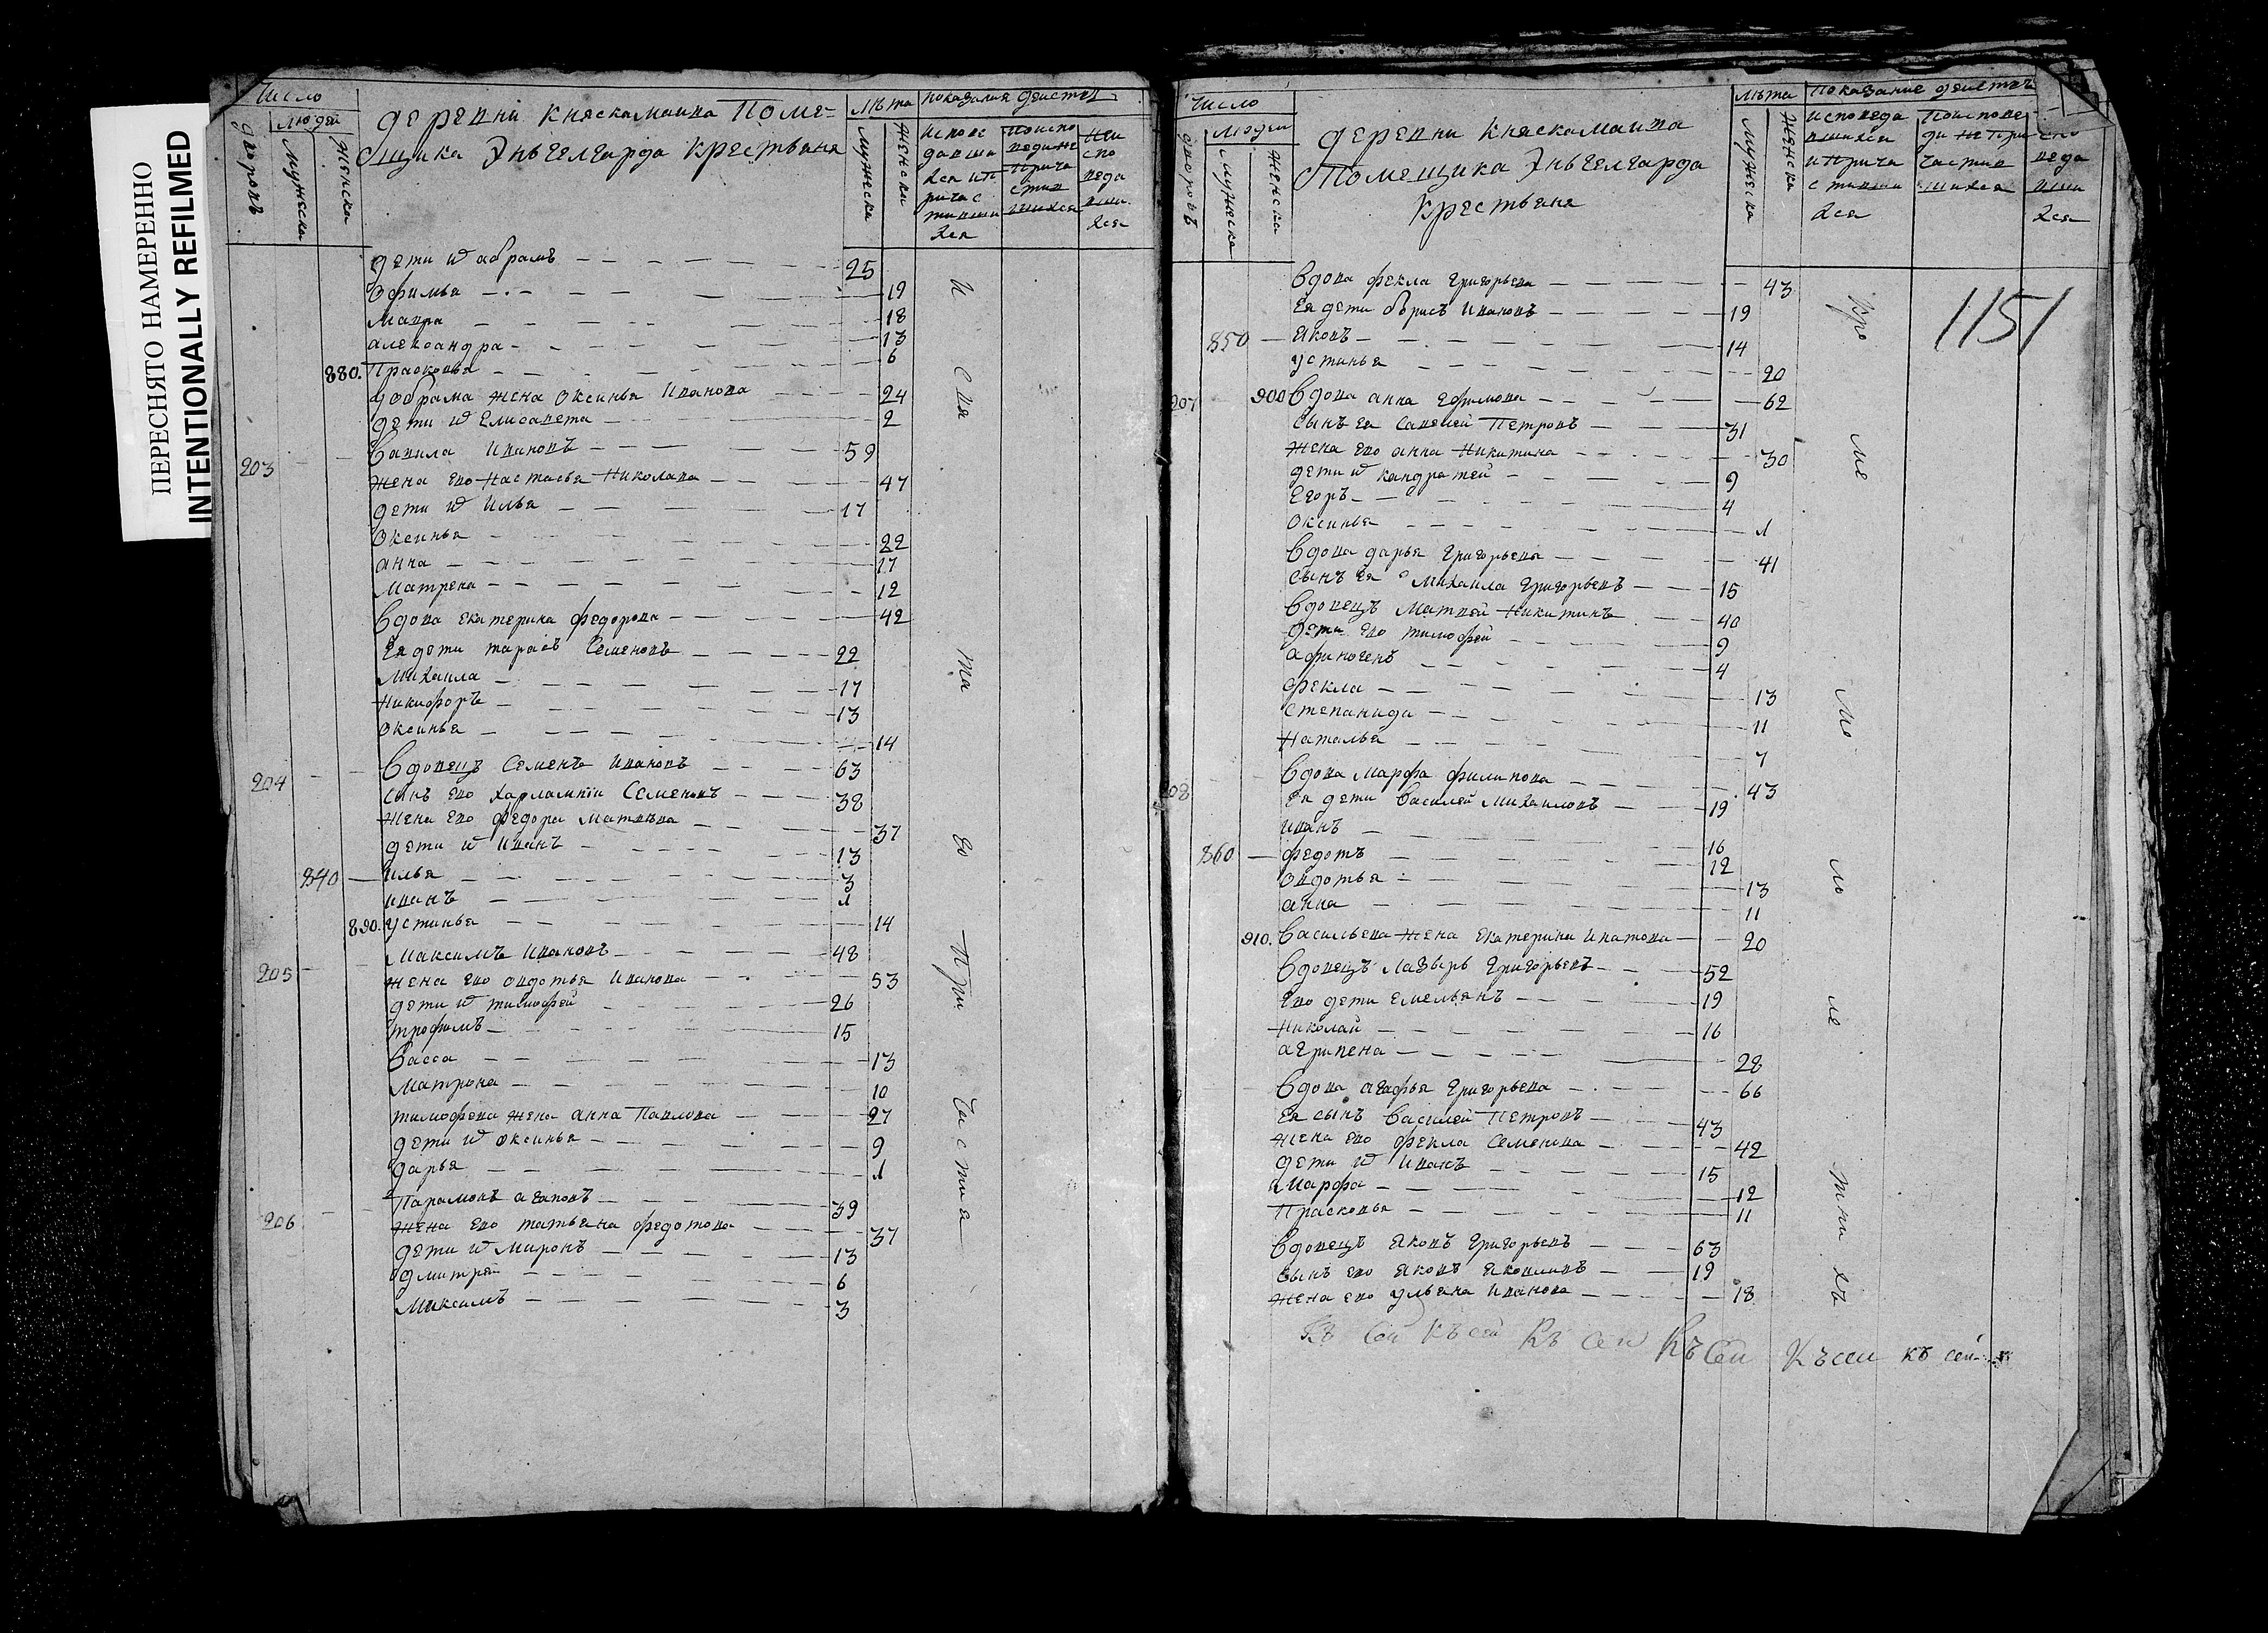 ПЕРЕСНЯТО НАМЕРЕННО
INTENTIONALLY REFILMED
Число
людей
дворовъ
мужеска
женска
деревни Княскамаина Поме-
щика Энъгелгарда крестьяня
лѣта
мужеска
женска
показания действ
исповедавшихся и причастившихся
дети и абрамъ 25
Офимья 19
Мавра 18
александра 13
880. Прасковья 6
абрама жена Оксинья Иванова 24
дети и Елисавета 2
203 Вавила Ивановъ 59
жена ево Настасья Николава 47
дети и Илья 17
Оксинья 22
анна 17
Матрена 12
вдова екатерина федорова 42
Ея дети тарасъ Семеновъ 22
Михаила 17
Никифоръ 13
Оксинья 14
204 вдовецъ Семенъ Ивановъ 63
сынъ ево Харлампии Семеновъ 38
жена ево федора Матвѣва 37
дети и Иванъ 13
840 илья 3
иванъ 1
890. устинья 14
205 Максимъ Ивановъ 48
жена ево овдотья Иванова 53
дети и тимофей 26
трофимъ 15
васса 13
Матрона 10
тимофева жена анна Павлова 27
дети и оксинья 9
дарья 1
206 Парамонъ агаповъ 39
жена ево татьяна федотова 37
дети и Миронъ 13
дмитрей 6
Максимъ 3
И
спя
та
го
При
части
Число
людей
дворовъ
мужеска
женска
деревни Княскамаина
Помещика Энъгелгарда
крестьяня
лѣта
мужеска
женска
Показание действъ
1151
вдова фекла Григорьева 43
Ея дети борисъ Ивановъ 19
850 Яковъ 14
устинья 20
207 900 вдова анна Ефимова 62
сынъ ея Савелей Петровъ 31
жена ево анна Никитина 30
дети и кандратей 9
Егоръ 4
Оксинья 1
вдова дарья Григорьева 41
сынъ ея Михаила Григорьевъ 15
вдовецъ Матвей Никитинъ 40
дети ево тимофей 9
афиногенъ 4
фекла 13
степанида 11
Наталья 7
208 вдова Марфа филипова 43
Ея дети василей Михаиловъ 19
иванъ 16
860 федотъ 12
овдотья 13
анна 11
910. васильева жена екатерина Игнатова 20
вдовецъ Лазырь Григорьевъ 52
Ево дети емельянъ 19
Николай 16
агрипена 28
вдова агафья Григорьева 66
Ея сынъ василей Петровъ 43
жена ево фекла Семенова 42
дети и Иванъ 15
Марфа 12
Прасковья 11
вдовецъ Яковъ Григорьевъ 63
сынъ ево Яковъ Яковлевъ 19
жена ево ульяна Иванова 18
Кро
ме
мо
ло
ле
тни
хъ
Къ сей къ сей Къ сей Къ сей Къ сей къ сей